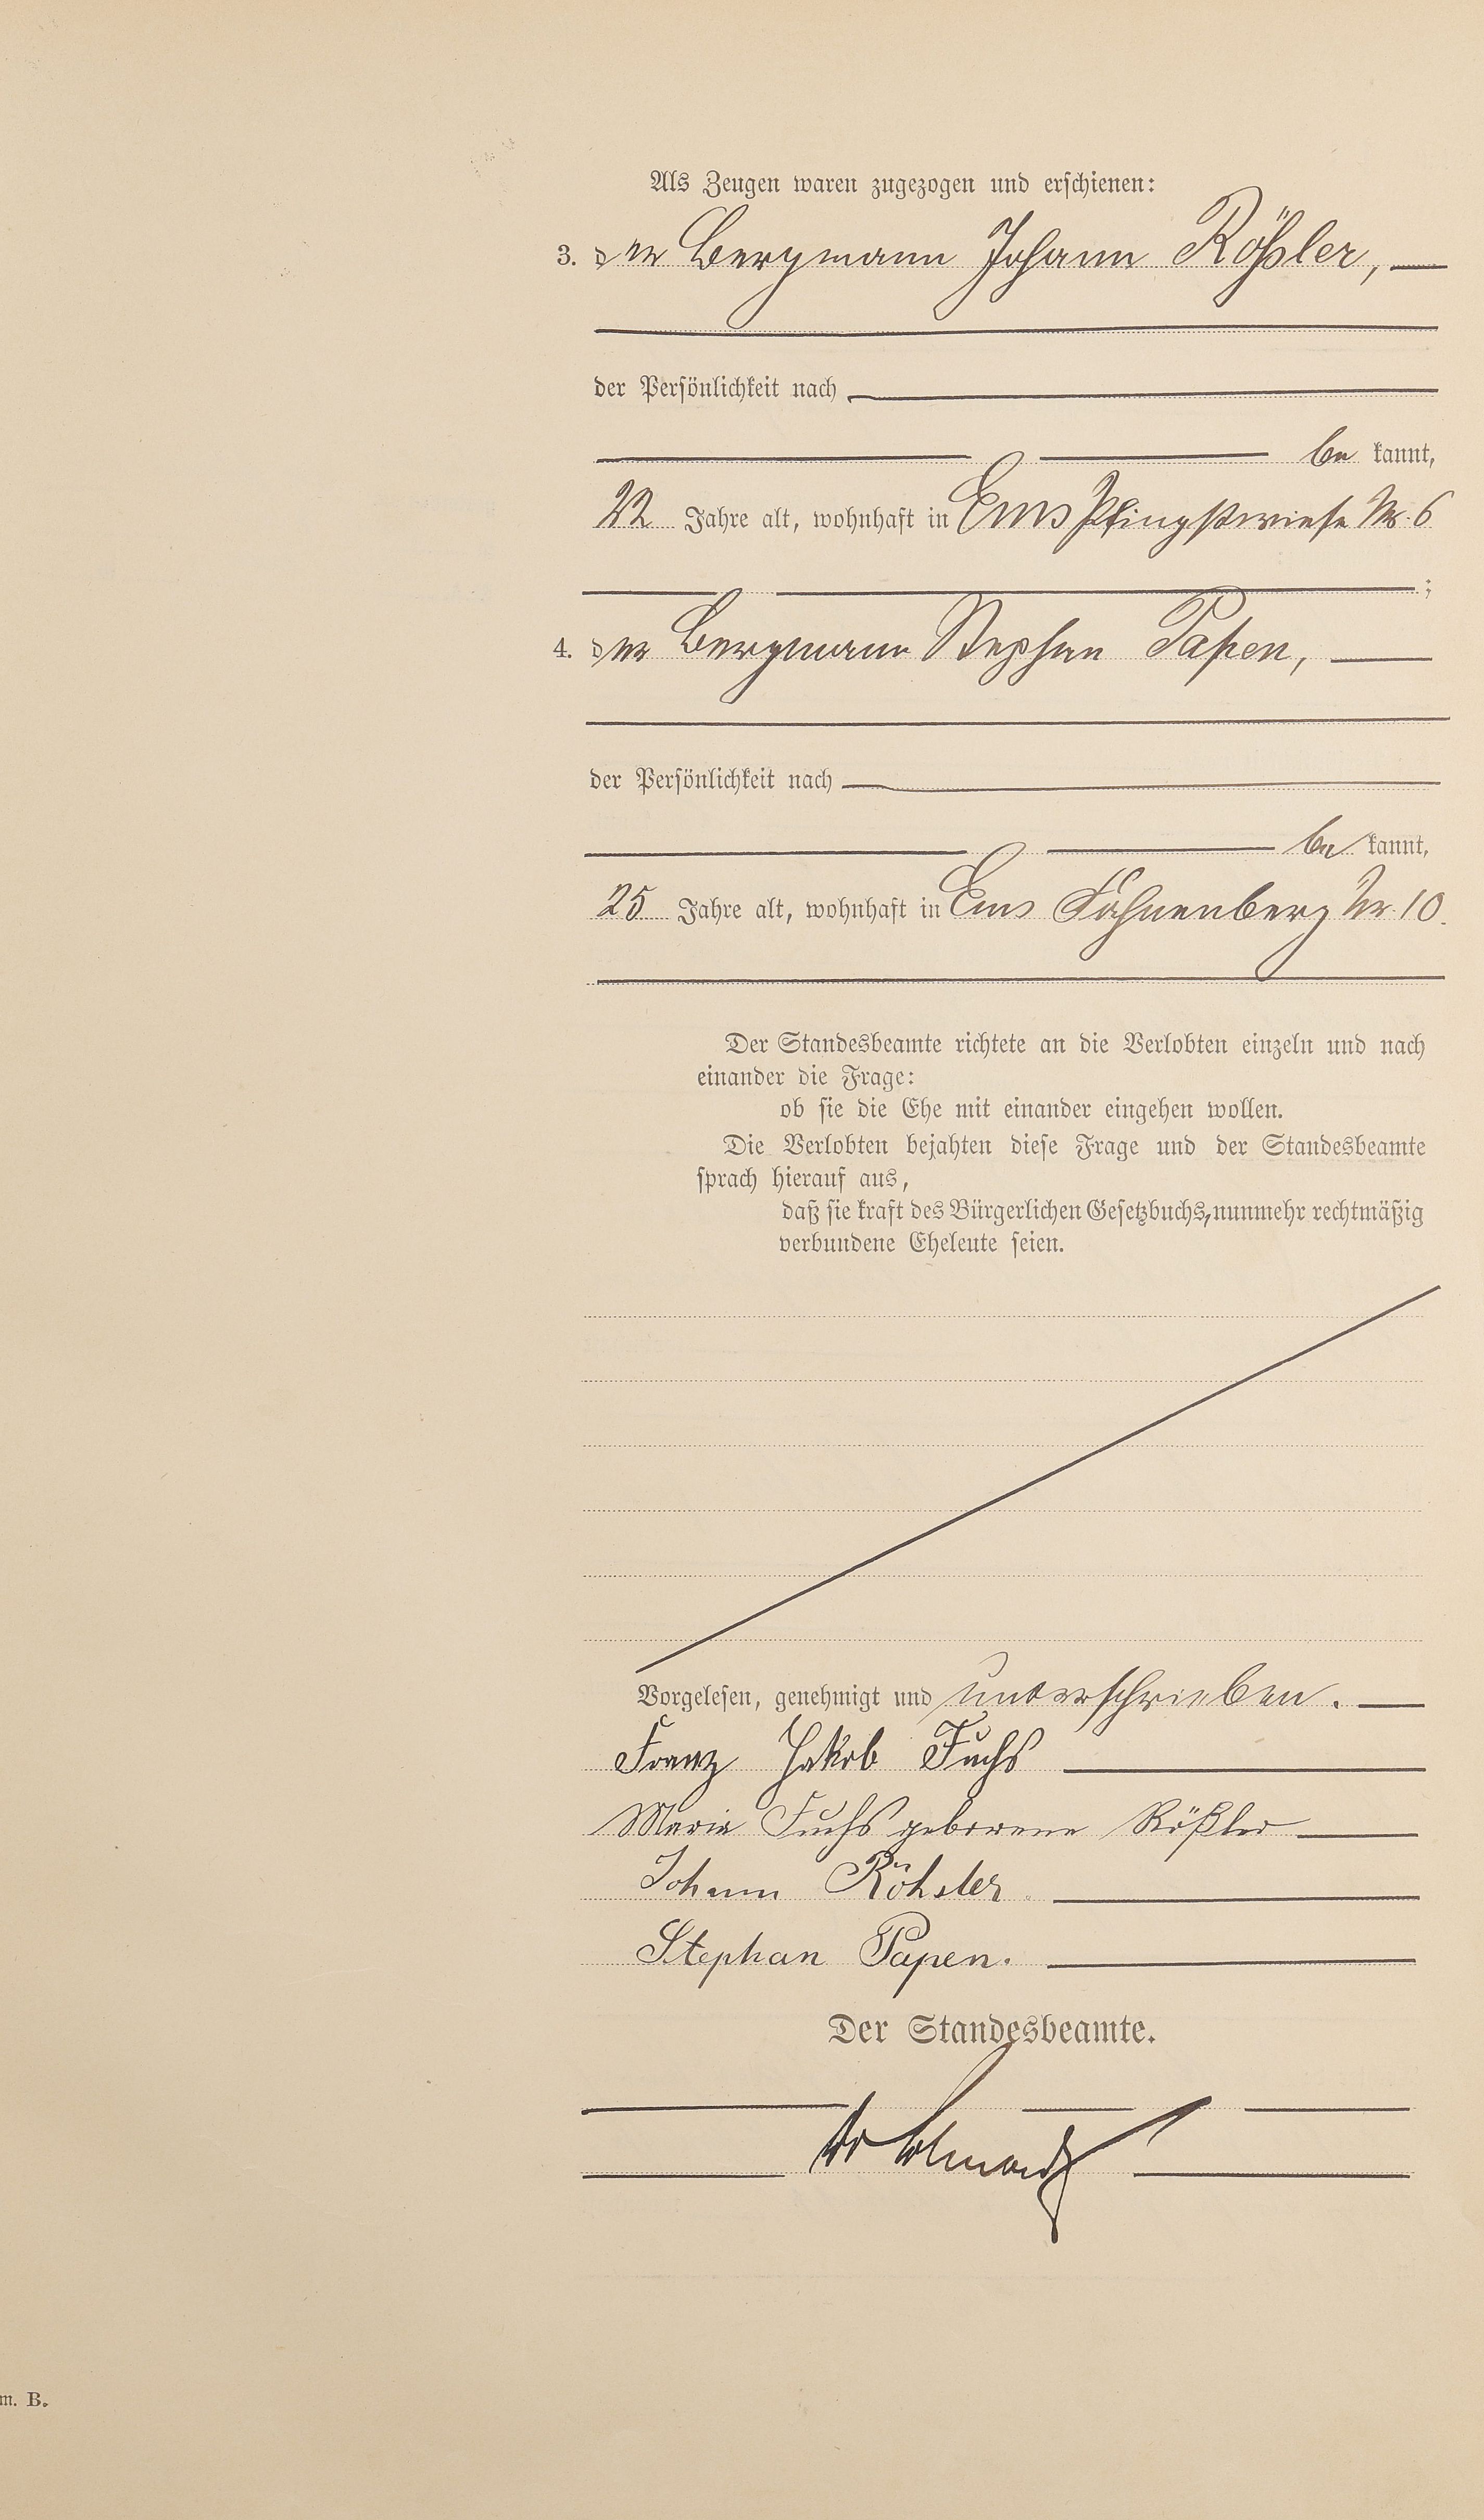 Als Zeugen waren zugezogen und erschienen:
3. der Bergmann Johann Rößler,
der Persönlichkeit nach
be kannt,
22 Jahre alt, wohnhaft in Ems Pfingstwiese Nr. 6
;
4. der Bergmann Stephan Papen,
der Persönlichkeit nach
be kannt,
25 Jahre alt, wohnhaft in Ems Fahnenberg Nr. 10.
Der Standesbeamte richtete an die Verlobten einzeln und nach
einander die Frage:
ob sie die Ehe mit einander eingehen wollen.
Die Verlobten bejahten diese Frage und der Standesbeamte
sprach hierauf aus,
daß sie kraft des Bürgerlichen Gesetzbuchs, nunmehr rechtmäßig
verbundene Eheleute seien.
Vorgelesen, genehmigt und unterschrieben.
Franz Jakob Fuchs
Maria Fuchs geborene Rößler
Johann Röhsler
Stephan Papen.
Der Standesbeamte.
m. B.